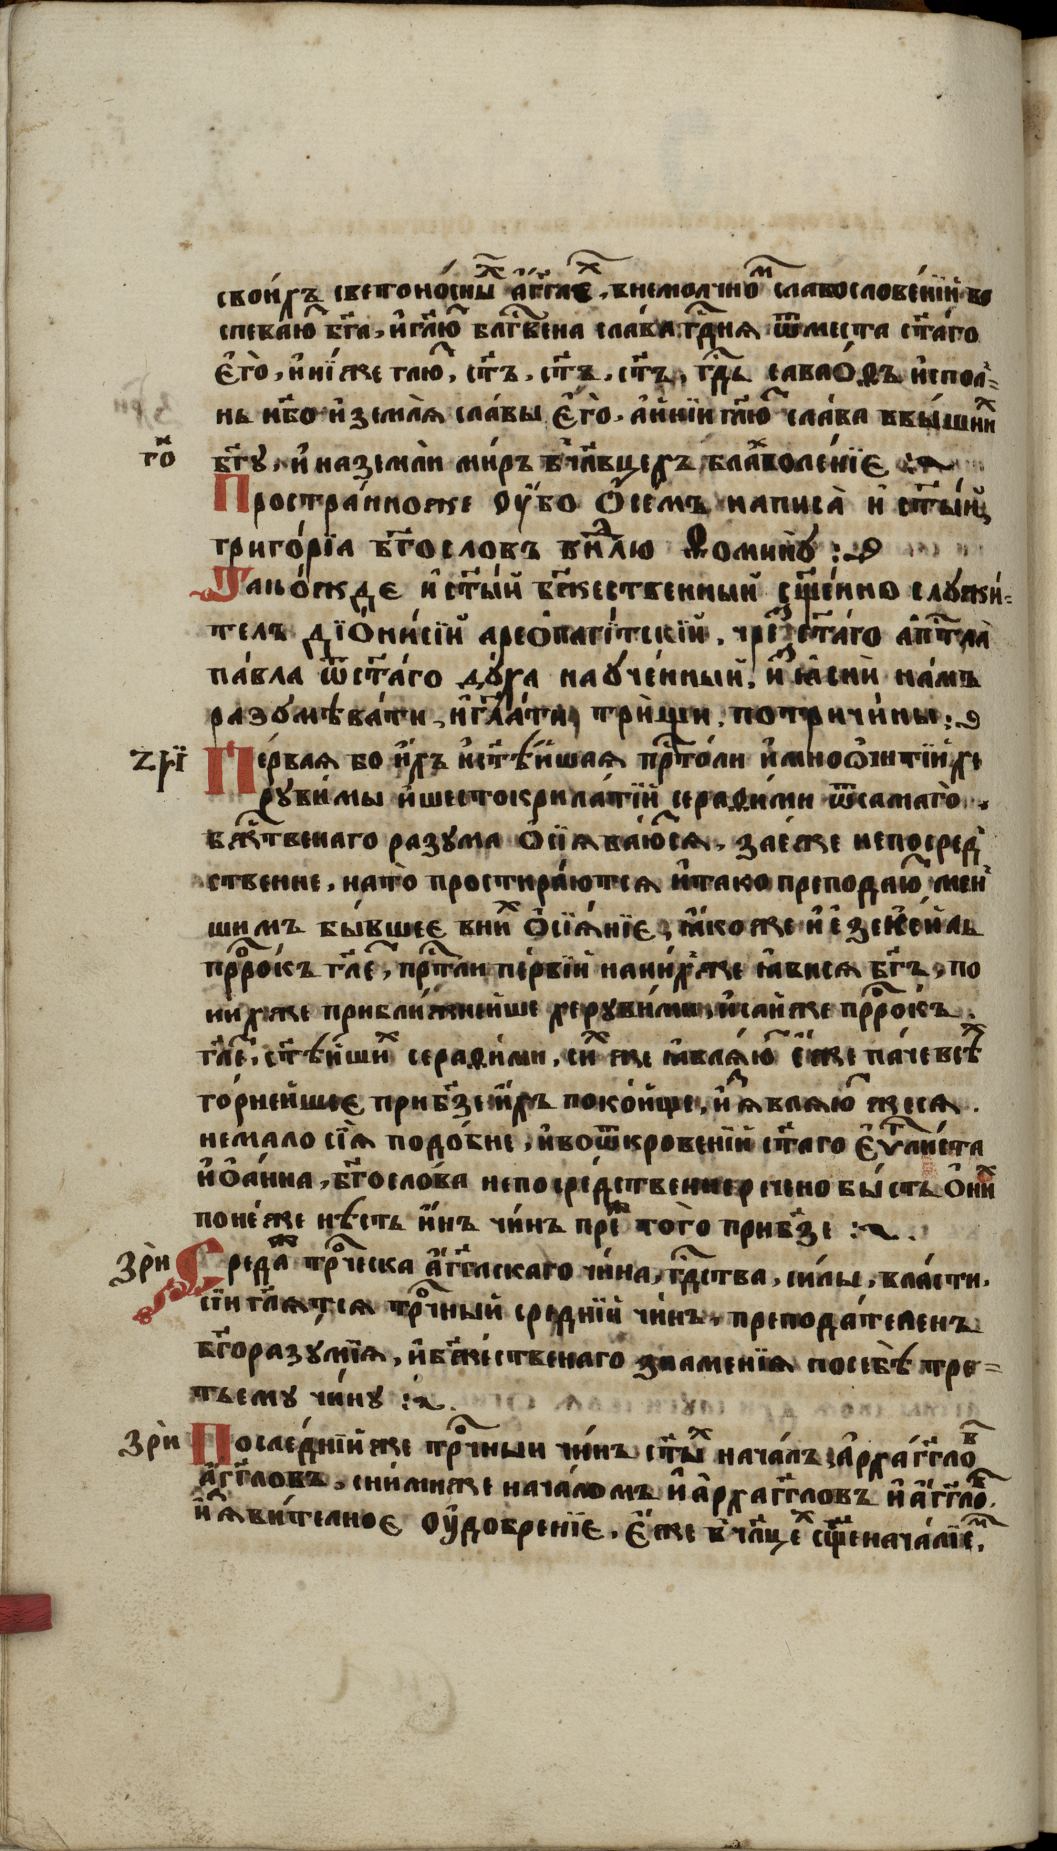 свои́хъ светоно́сны̑х а҆́гг҃лех, внемо́лчно̑м славосло́вѣнїй во
спеваю̑т бг҃а, и҆ гл҃ю̑т блг҃ве́на сла́ва гдн҃я ѿ места ст҃а́го
є҆го̀, и҆нїи́ же гл҃ю̑т, ст҃ъ, ст҃ъ, ст҃ъ, гд҃ь саваѻ́ѳъ и҆спол-
нь нб҃о и҆ земля̀ сла́вы є҆го̀, а҆ и҆нїи гл҃ю̑т сла́ва ввы́шних
го҃
бг҃у, и҆ на землѝ ми́ръ в чл҃вцехъ благоволе́нїе :~
Простра́нно же ѹ҆́бо ѻ҆ семъ написа̀ и҆ ст҃ы́й
григо́рїа бг҃ословъ в нд҃лю ѳомину̀ :~
Таѩ́ожде и҆ ст҃ы́й бж҃ественный сщ҃е́нно служи́-
тель дїѻни́сїй ареѻпаги́тскїй, чрез ст҃а́го а҆пⷭ҇тла
па́вла ѿ ст҃а́го дх҃а науче́нный, и҆зъѧснѝ на́мъ
разумѣва́ти, и҆ гл҃ати, три́щи, по три чи́ны :~
зри̏
Пе́рвая бо и҆́хъ и҆ ст҃ѣ́йшая прⷭ҇то́ли и҆ многоѻчитїи хе
руви́мы и҆ шестокрила́тїй серафи́ми ѿ самаго̀
бжⷭ҇твенаго разума ѻ҆сїява́ютсѧ, зане́же непосред
ственне, на то̀ простира́ются и҆ тако преподаю̑т мен
шимъ бы́вшее в них ѻ҆сїя́нїе, ꙗ҆́коже и҆ е҆зеке́иль
прⷪ҇ро́къ гл҃е̑т, прⷭ҇тли пе́рвїй на ни́хже ꙗ҆вися бг҃ъ, по
ни́хже прибли́жнейше херуви́ми, и҆са́йже прⷪ҇ро́къ
гл҃е̑т, ст҃ѣ́йших серафи́ми, си̑х же ꙗ҆вля́ю̑т є҆́же па́че всѣх
го́рнейшее при бз҃е и҆́хъ поко́ище, и҆зъявляю̑т же ся.
не мало сїѧ̀ подо́бне, и҆ во ѿкровенїй ст҃аго є҆ѵⷢ҇ли́ста
и҆ѻа́нна, бг҃осло́ва непосре́дственне речено бы́сть ѻ҆ них
поне́же нѣ́сть и҆́нъ чи́нъ пре̑ж то̀го при бз҃е :~.
зри̏
Среда̑ж трⷪ҇ческа а҆́гг҃лскаго чи́на, гдⷭ҇ства, си́лы, вла́сти,
сїи гл҃ятся трⷪ҇чный сре́днїй чи́нъ, препода́теленъ
бг҃оразу́мїя, и҆ бж҃е́ственаго зна́менїя по себѣ̀ тре-
тьему чи́ну :~
зри̏
После́днїй же трⷪ҇чный чи́нъ ст҃ы̑х нача́лъ, а҆рха́гг҃лов
а҆́гг҃ловъ, с ни́миже нача́ломъ и҆ а҆рха́гг҃ловъ и҆ а҆́гг҃лов,
и҆зъяви́телное ѹ҆добре́нїе, є҆́же в чл҃цех сщ҃еннача́лїем,